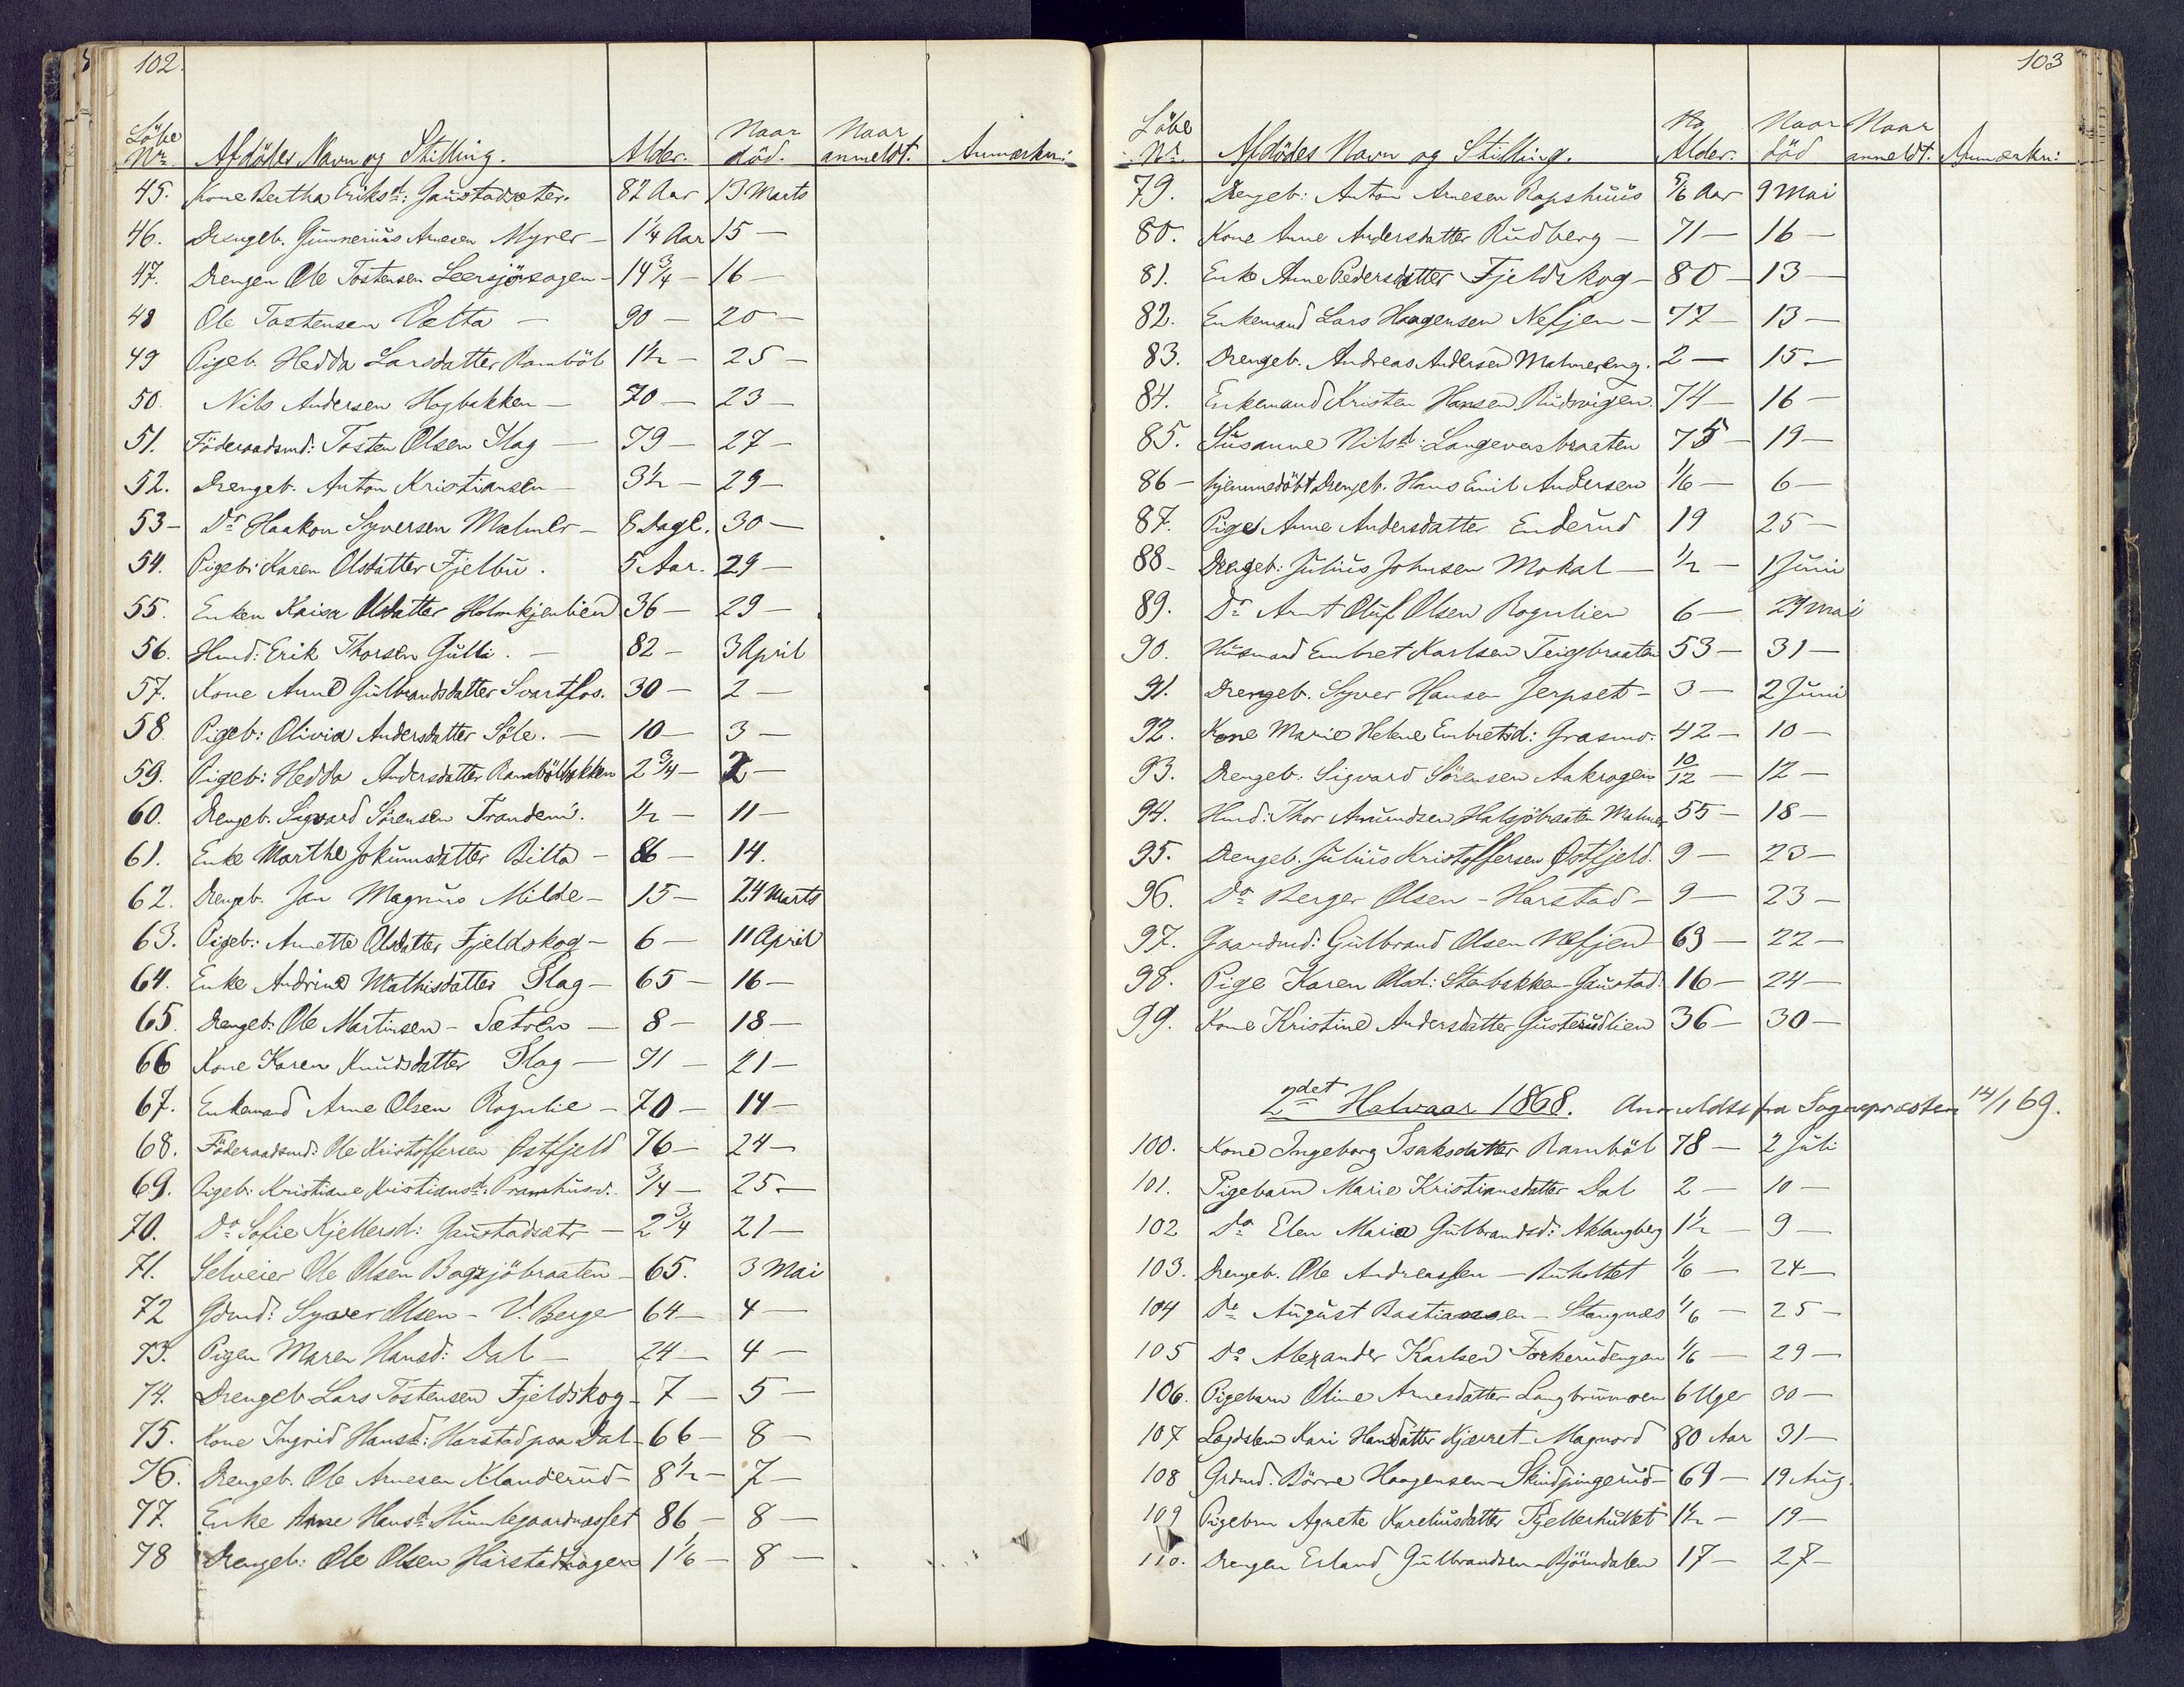 102.
Löbe Nr. Afdödes Navn og Stilling. Alder. Naar död. Naar anmeldt. Anmærkn:
45. Kone Bertha Eriksd: Gaustadsæter. 82 Aar 13 Marts
46. Drengeb. Gunnerius Arnesen Myrer — 1¼ Aar 15 —
47. Drengen Ole Tostensen Leersjöhagen — 14¾ — 16 —
48 Ole Tostensen Vætta — 90 — 20 —
49 Pigeb. Hedda Larsdatter Ramböl 1½ — 25 —
50. Nils Andersen Hogbakken — 70 — 23 —
51. Föderaadsmd: Tosten Olsen Flag — 79 — 27 —
52. Drengeb. Anton Kristiansen — 3½ — 29 —
53 — Do Haakon Syversen Malmer — 8 Dage. 30 —
54. Pigeb: Karen Olsdatter Fjelbu. 5 Aar. 29 —
55. Enken Kaisa Olsdatter Holmkjenlien 36 — 29 —
56. Hmd: Erik Thorsen Gulli. — 82 — 3 April
57. Kone Anne Gulbrandsdatter Svartfos. 30 — 2 —
58. Pigeb: Olivia Andersdatter Söle. — 10 — 3 —
59. Pigeb: Hedda Andersdatter Rambölbakken 2¾ — 2 —
60. Drengeb. Sigvard Sörensen Trandem. ½ — 11 —
61. Enke Marthe Jokumsdatter Bilta — 86 — 14.
62. Drengeb. Jan Magnus Milde — 15 — 24 Marts
63. Pigeb: Annette Olsdatter Fjeldskog — 6 — 11 April
64. Enke Andrine Mathisdatter Flag — 65 — 16 —
65. Drengeb: Ole Martinsen — Sætren — 8 — 18 —
66 Kone Karen Knudsdatter Flag — 71 — 21 —
67. Enkemand Arne Olsen Rognlie — 70 — 14 —
68. Föderaadsmd: Ole Kristoffersen Østfjeld 76 — 24 —
69. Pigeb: Kristiane Kristiansd: Pramhusv. ¾ — 25 —
70. Do Sofie Kjellersd: Gaustadsætr — 2¾ 21 —
71. Selveier Ole Olsen Bogsjöbraaten — 65. 3 Mai
72 Gdmd: Syver Olsen — V. Berge 64 — 4 —
73. Pigen Maren Hansd: Dal — 24 — 4 —
74. Drengeb Lars Tostensen Fjeldskog — 7 — 5 —
75. Kone Ingrid Hansd: Harstad paa Dal — 66 — 8 —
76. Drengeb. Ole Arnesen Klanderud — 8½ — 7 —
77. Enke Anne Hansd: Humlegaardnæsset 86 — 8 —
78 Drengeb: Ole Olsen Harstadhagen 1 1/6 — 8 —
103
Löbe Nr. Afdödes Navn og Stilling. Alder. Naar död Naar anmeldt. Anmærkn:
79. Drengeb: Anton Arnesen Rapshuus 5/6 Aar 9 Mai
80. Kone Anne Andersdatter Rudberg — 71 — 16 —
81. Enke Anne Pedersdatter Fjeldskog — 80 — 13 —
82. Enkemand Lars Haagensen Nefjen — 77 — 13 —
83. Drengeb. Andreas Andersen Malmereng. 2 — 15 —
84. Enkemand Kristen Hansen Rudsvigen. 74 — 16 —
85. Susanne Nilsd: Langeversbraaten 75 — 19 —
86 — hjemmedöbt Drengeb. Hans Emil Andersen 1/6 — 6 —
87. Pige Anne Andersdatter Enderud 19 25 —
88 — Drengeb: Julius Johnsen Mokal — ½ — 1 Juni
89. Do Arnt Oluf Olsen Rognlien 6 — 29 Mai
90. Husmand Embret Karlsen Teigbraaten 53 — 31 —
91. Drengeb. Syver Hansen Jerpset — 3 — 2 Juni
92. Kone Marie Helene Embretsd: Grasmo. 42 — 10 —
93. Drengeb. Sigvard Sörensen Aakrogen 10/12 — 12 —
94. Hmd: Thor Amundsen Halsjöbraaten Malmer 55 — 18 —
95. Drengeb. Julius Kristoffersen Østfjeld. 9 — 23 —
96. Do Berger Olsen — Harstad — 9 — 23 —
97. Gaardmd: Gulbrand Olsen Nefjen 63 — 22 —
98. Pige Karen Olsd: Stenbakken — Gaustad. 16 — 24 —
99. Kone Kristine Andersdatter Gusterudlien 36 — 30 —
2det Halvaar 1868. Anmeldte fra Sognepræsten 14/1 69.
100. Kone Ingeborg Isaksdatter Ramböl 78 — 2 Juli
101. Pigebarn Marie Kristiansdatter Dal 2 — 10 —
102 Do Elen Maria Gulbrandsd: Aklangberg 1½ — 9 —
103. Drengeb. Ole Andreassen — Ruholtet 1/6 — 24 —
104 Do August Bastiansen — Stangnæs 1/6 — 25 —
105 Do Alexander Karlsen Forkerudengen 1/6 — 29 —
106. Pigebarn Oline Arnesdatter Langbrunmoen 6 Uger 30 —
107 Lægdslem Kari Hansdatter Kjærret — Magnord 80 Aar 31 —
108 Grdmd. Börre Haagensen — Skindpungerud — 69 — 19 Aug.
109 Pigebrn Agnete Kareliusdatter Fjellerhultet 1½ — 19 —
110. Drengen Erland Gulbrandsen — Björndalen 17 — 27 —